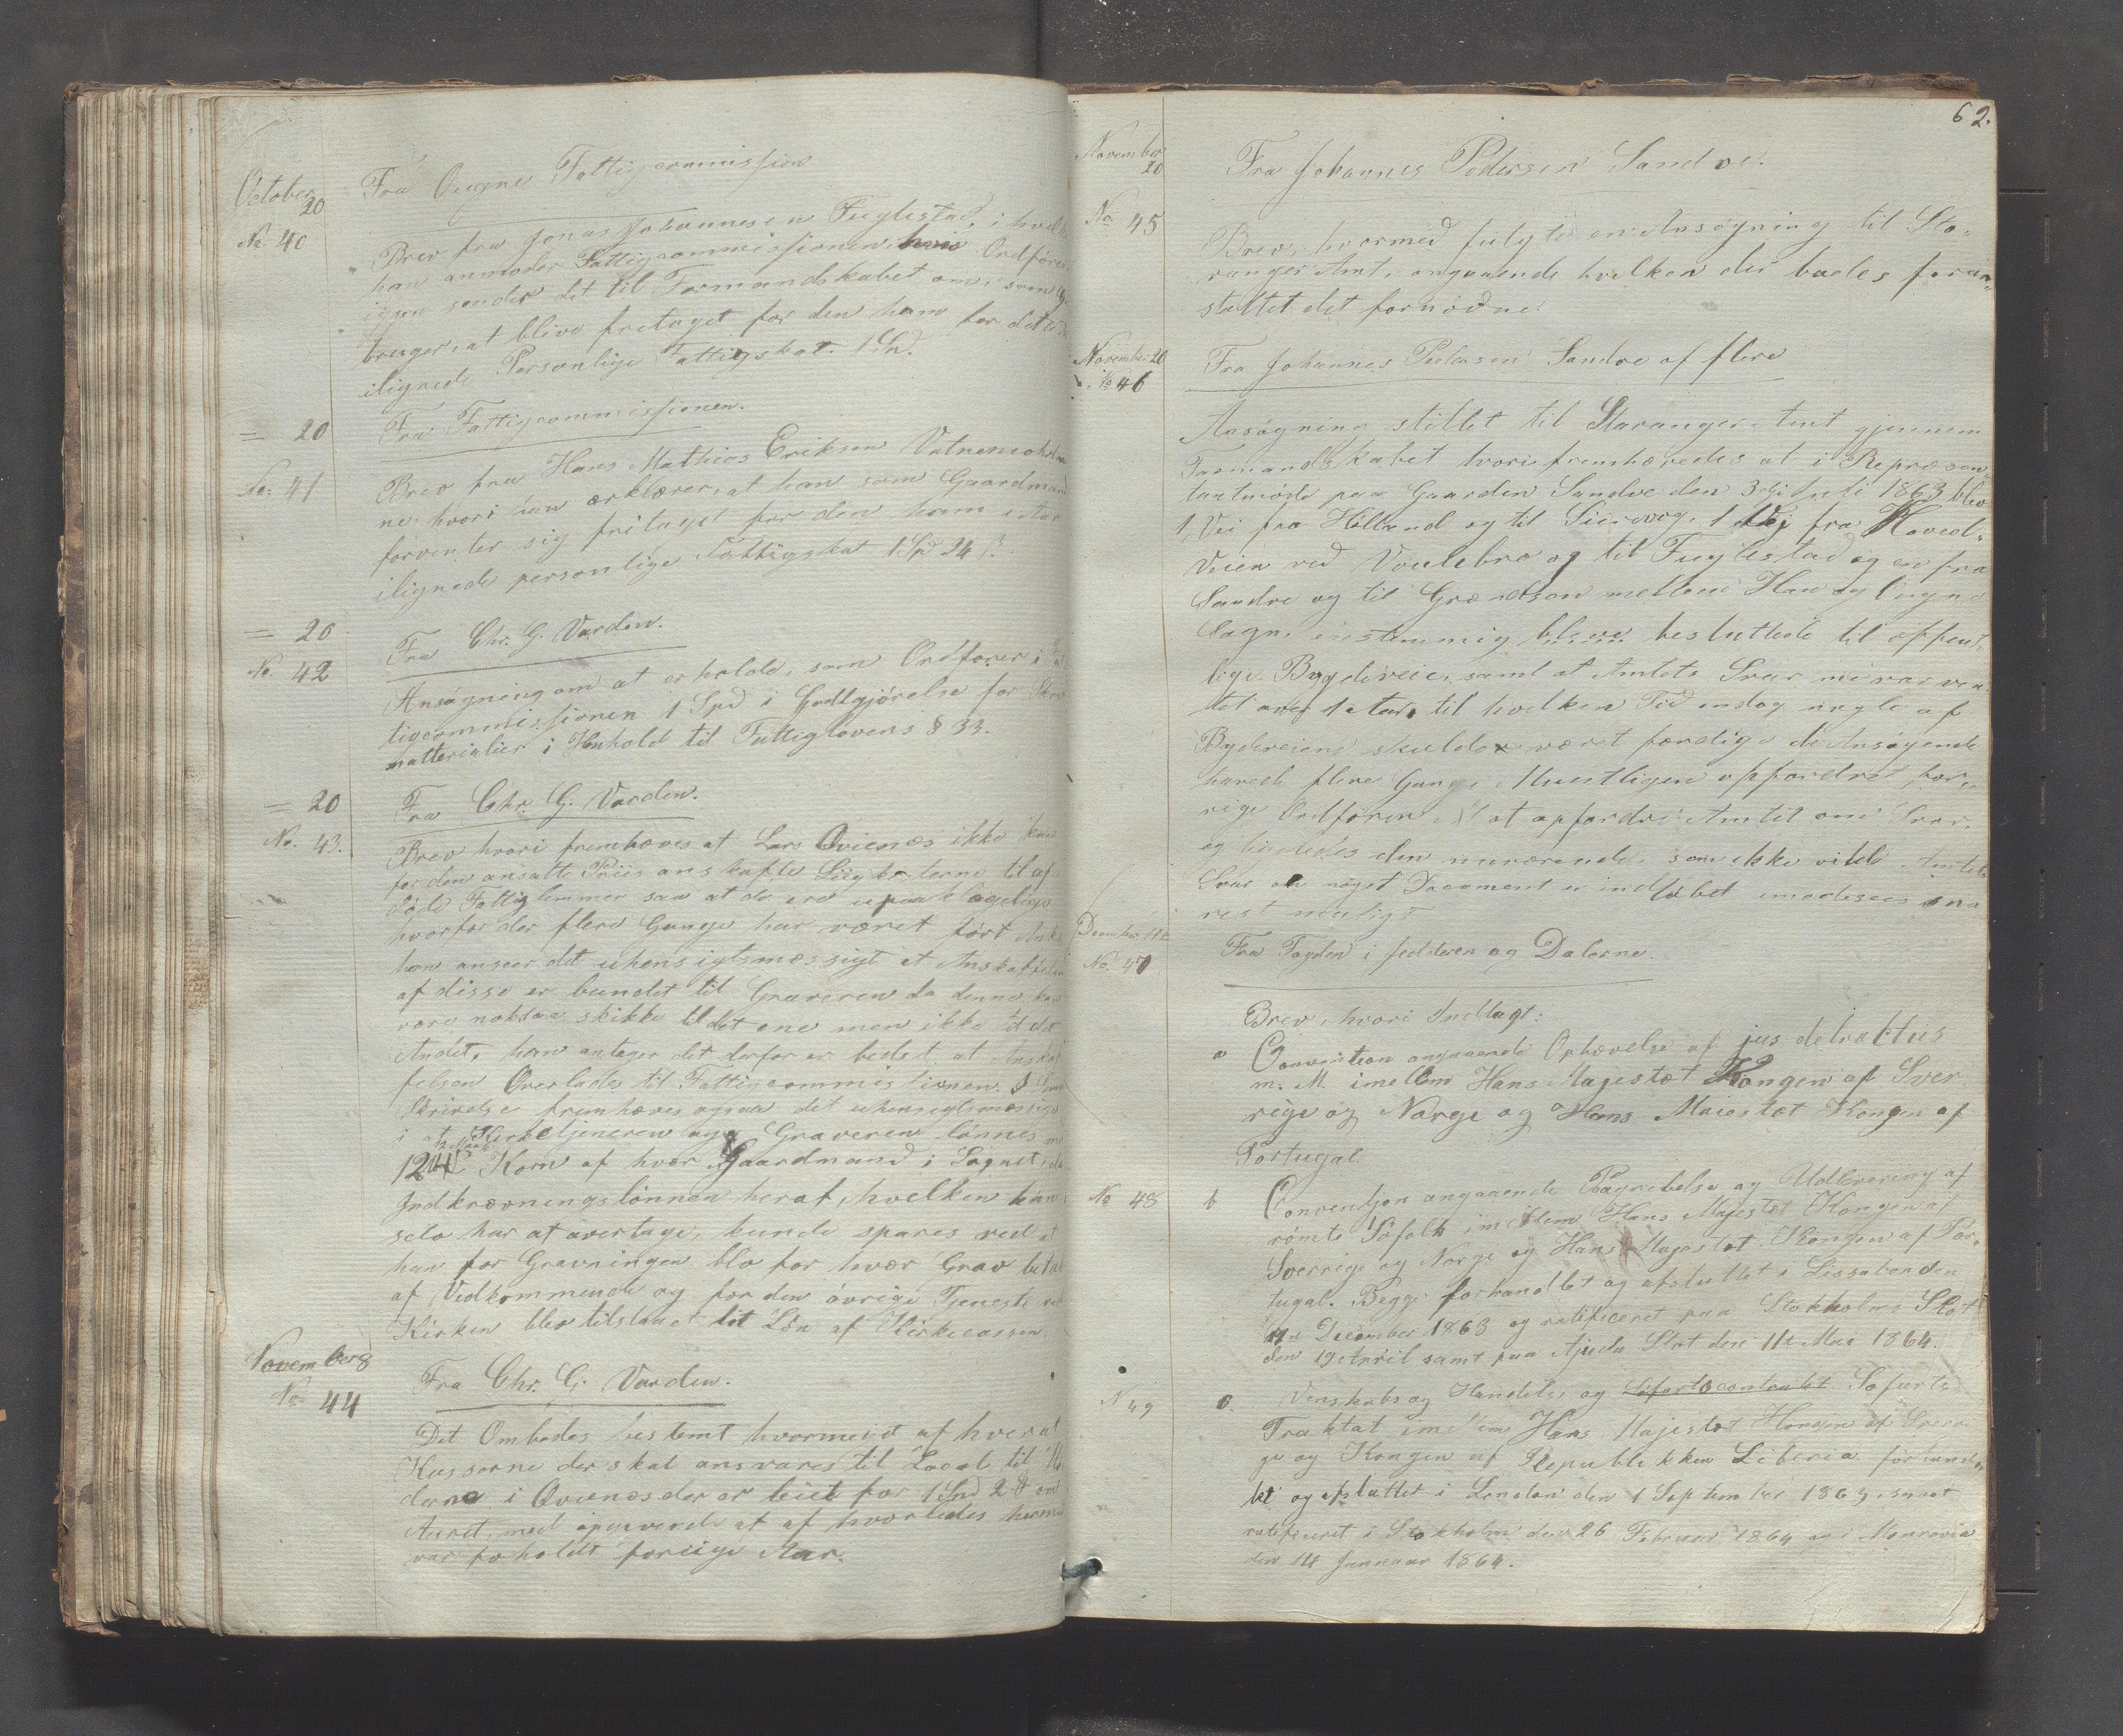 October 20
Fra Ougne Fattigcommission
No. 40
Brev fra Jonas Johannesen Fuglestad, i hvilk
han anmoder Fattigcommissionen, hvis Ordförer
igjen sender det til Formandskabet om, som
bruger, at blive fritaget for den ham for dette
ilignede Personlige Fattigskat. 1 Spd.
= 20
Fra Fattigcommissionen.
No. 41
Brev fra Hans Mathias Eriksen Vatnemohol
ne, hvori han ærklærer, at han som Gaardmand
forventer sig fritaget for den ham i Aar
ilignede personlige Fattigskat 1 Spd 24 ß.
= 20
Fra Chr. G. Varden.
No. 42
Ansögning om at erholde, som Ordförer i Fat
tigcommissionen 1 Spd i Godtgjörelse for Skriv
matterialier i Henhold til Fattiglovens § 33.
= 20
Fra Chr. G. Varden.
No. 43.
Brev hvori fremhæves at Lars Qvienæs ikke kan
for den ansatte Priis anskaffe Liigkisterne til af
döde Fattiglemmer saa at de ere upaaklagelige
hvorfor der flere Gange har været fört Anke
han anseer det uhensigtsmæssigt at Anskaffelsen
af disse er bundet til Graveren da denne kan
være noksaa skikke til det ene men ikke til det
Andet, han antager det derfor er bedst at Anskaf
felsen Overlades til Fattigcommissionen. I Samme
Skrivelse fremhæves ogsaa det uhensigtsmæssige
i at Kirketjeneren og Graveren lönnes med
12 Korn af hver Gaardmand i Sognet, da
Indkrævningslönnen heraf, hvilken han
selv har at overtage, kunde spares ved at
han for Gravningen blev for hver Grav betalt
af Vedkommende og for den övrige Tjeneste ved
Kirken blev tilstaaet lit Lön af Kirkecassen.
November 8
Fra Chr. G. Varden.
No. 44
Det Ombedes bestemt hvormeget af hver af
Kasserne der skal ansvares til Locale til Mö
derne i Qvienæs der er leiet for 1 Spd 2 om
Aaret, med opgivende af af hvorledes hermed
var forholdt forrige Aar.
62.
November 20
Fra Johannes Pedersen Sandve.
No. 45
Brev, hvormed fulgte en Ansögning til Sta-
vanger Amt, angaaende hvilken der bades foran-
staltet det fornödne.
November 20
Fra Johannes Pedersen Sandve af flere
No 46
Ansögning stillet til Stavanger Amt gjennem
Formandskabet hvori fremhævedes at i Repræsen-
tantmöde paa Gaarden Sandve den 3die Juli 1863 blev
1 Vei fra Helland og til Siirevog, 1 Vej fra Hoved-
Veien ved Voulebro og til Fuglestad og en fra
Sandve og til Grændsen mellem Haa og Ougne
Sogn, enstemmig bleve besluttede til offent-
lige Bygdeveie, samt at Amtets Svar nu var ven
tet over 1 Aar, til hvilken Tid endog nogle af
Bydeveiene skulde været færdige de Ansögende
havde flere Gange Mundtligen opfordret for-
rige Ordförer til at opfordre Amtet om Svar,
og ligeledes den nuværende, som ikke vilde Amtets
Svar om noget Document er indlöbet imodesees sna
rest muligt
December 11
Fra Fogden i Jedderen og Dalerne.
No. 47
Brev, hvori Indlagt:
a Convention angaaende Ophævelse af jus detraktus
m. M. imellem Hans Majestæt Kongen af Sver
rige og Norge og Hans Maiestæt Kongen af
Portugal.
No 48
b Convention angaaende Paagribelse og Udlevering af
römte Söfolk imellem Hans Majestæt Kongen af
Sverrige og Norge og Hans Majestæt Kongen af Por-
tugal. Begge forhandlet og afsluttet i Lissabon den
17de December 1863 og ratificeret paa Stokholms Slot
den 19 April samt paa Ajuda Slot den 11te Mai 1864.
N 49
c. Venskabs og Handels, og Söfartscontrakt Söfarts
Traktat imellem Hans Majestæt Kongen af Sverri
ge og Kongen af Republikken Liberia forhand-
let og afsluttet i London den 1 September 1863, samt
ratificeret i Stokholm den 26 Februar 1864 og i Monrovia
den 14 Januar 1864.